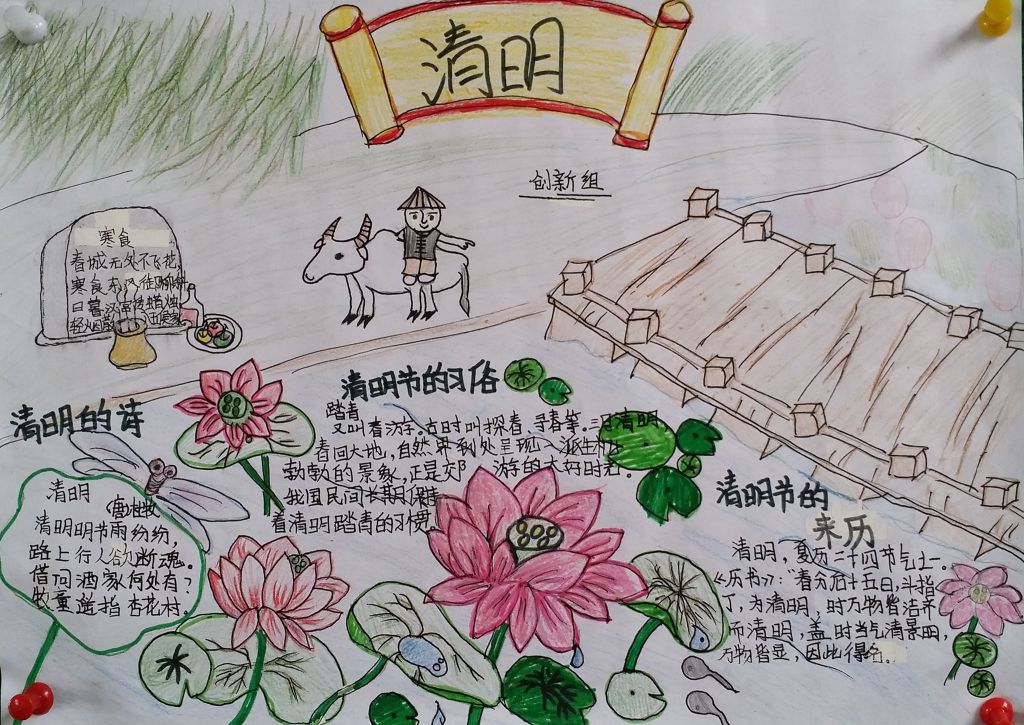 清明
创新组
寒食
春城无处不飞花,
寒食东
日暮汉宫传蜡烛
轻烟
清明的诗
清明
唐 杜牧
清明明节雨纷纷,
路上行人欲断魂。
借问酒家何处有?
牧童遥指杏花村。
清明节的习俗
踏青
又叫春游。古时叫探春、寻春等。三月清明,
春回大地,自然界到处呈现一派生机
勃勃的景象,正是郊 游的大好时光。
我国民间长期保
着清明踏青的习惯。
清明节的
来历
清明,夏历二十四节气之一。
《历书》:“春分后十五日,斗指
丁,为清明,时万物皆洁齐
而清明,盖时当气清景明,
万物皆显,因此得名。